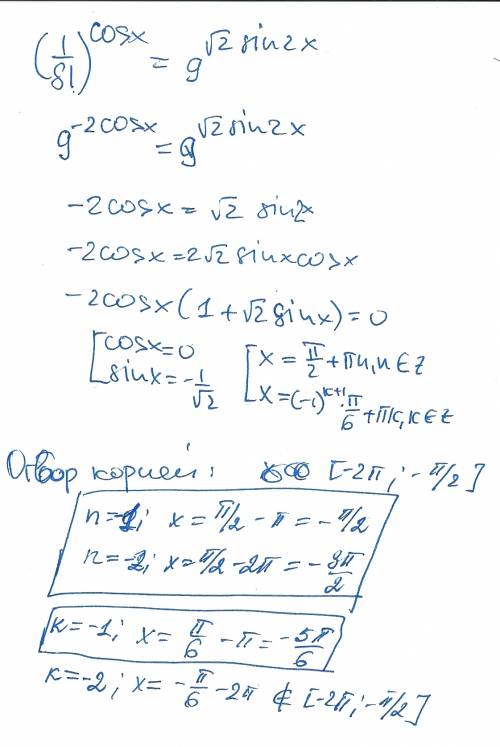 (1/81)^cosx = 9^√2 sin2x
9^-2cosx = 9^√2 sin2x
-2cosx = √2 sin2x
-2cosx = 2√2 sinxcosx
-2cosx(1+√2 sinx) = 0
[cosx=0 [x = π/2 + πn, n ∈ Z
sinx = -1/√2 x = (-1)^k+1 · π/6 + πk, k ∈ Z
Отбор корней: [-2π; -π/2]
n=-1; x = π/2 - π = -π/2
n=-2; x = π/2 - 2π = -3π/2
k=-1; x = π/6 - π = -5π/6
k=-2; x = -π/6 - 2π ∉ [-2π; -π/2]